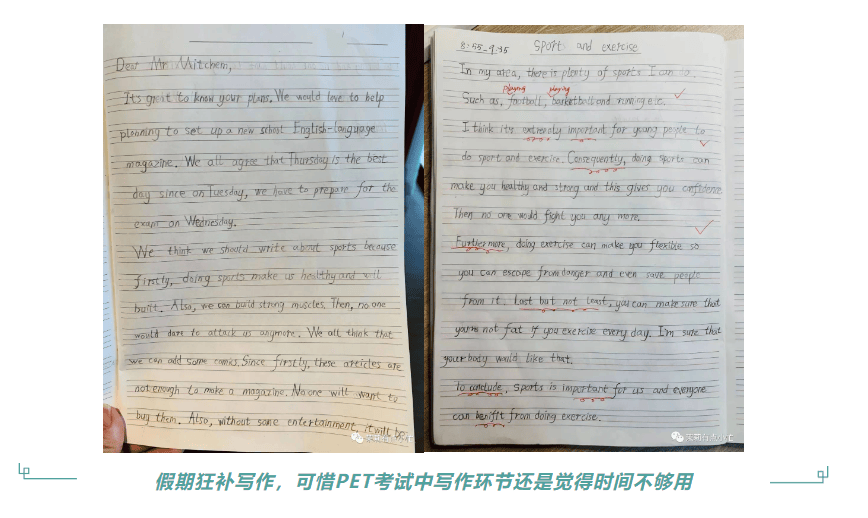 Dear Mr Mitchem,
It's great to know your plans. We would love to help
planning to set up a new school English-language
magazine. We all agree that Thursday is the best
day since on Tuesday, we have to prepare for the
exam on Wednesday.
We think we should write about sports because
firstly, doing sports make us healthy and will
built. Also, we can build strong muscles. Then, no one
would dare to attack us anymore. We all think that
we can add some comics. Since firstly, these articles are
not enough to make a magazine. No one will want to
buy them. Also, without some entertainment, it will be
8:55-9:15 Sport and exercise
In my area, there is plenty of sports I can do.
playing playing
Such as, football, basketball and running etc.
I think it's extremely important for young people to
do sport and exercise. Consequently, doing sports can
make you healthy and strong and this gives you confidence
Then no one would fight you any more.
Furthermore, doing exercise can make you flexible so
you can escape from danger and even save people
from it. Last but not least, you can make sure that
you're not fat if you exercise every day. I'm sure that
your body would like that.
To conclude, sports is important for us and everyone
can benifit from doing exercise.
假期狂补写作，可惜PET考试中写作环节还是觉得时间不够用